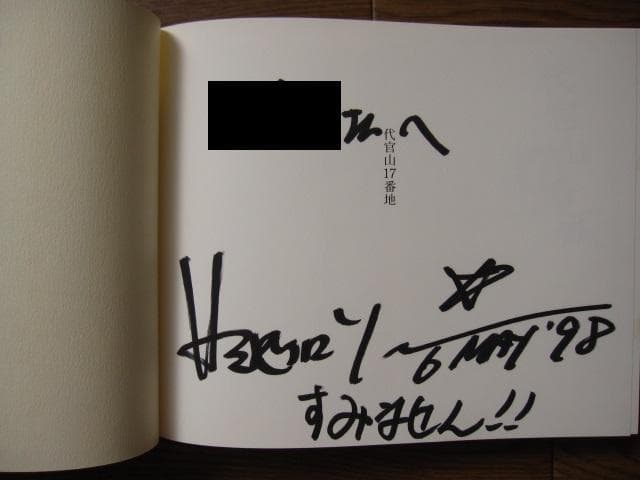 さんへ
代官山17番地
6 MAY '98
すみません!!